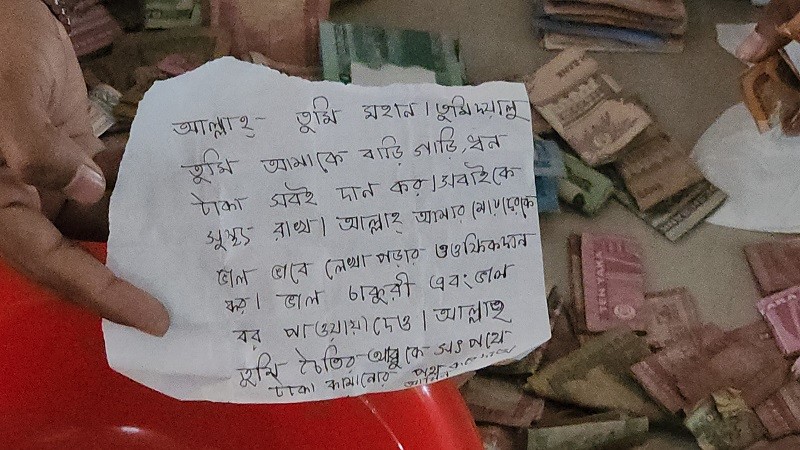 আল্লাহ্ তুমি মহান। তুমি দয়ালু
তুমি আমাকে বাড়ি গাড়ি, ধন
টাকা সবই দান কর। সবাইকে
সুস্থ্য রাখ। আল্লাহ্ আমার মেয়েদেরকে
ভাল ভাবে লেখা পড়ার তওফিক দান
কর। ভাল চাকুরী এবং ভাল
বর পাওয়ায়া দেও। আল্লাহ্
তুমি চৈতির আব্বুকে সৎ পথে
টাকা কামানোর পথ
TEN TAKA